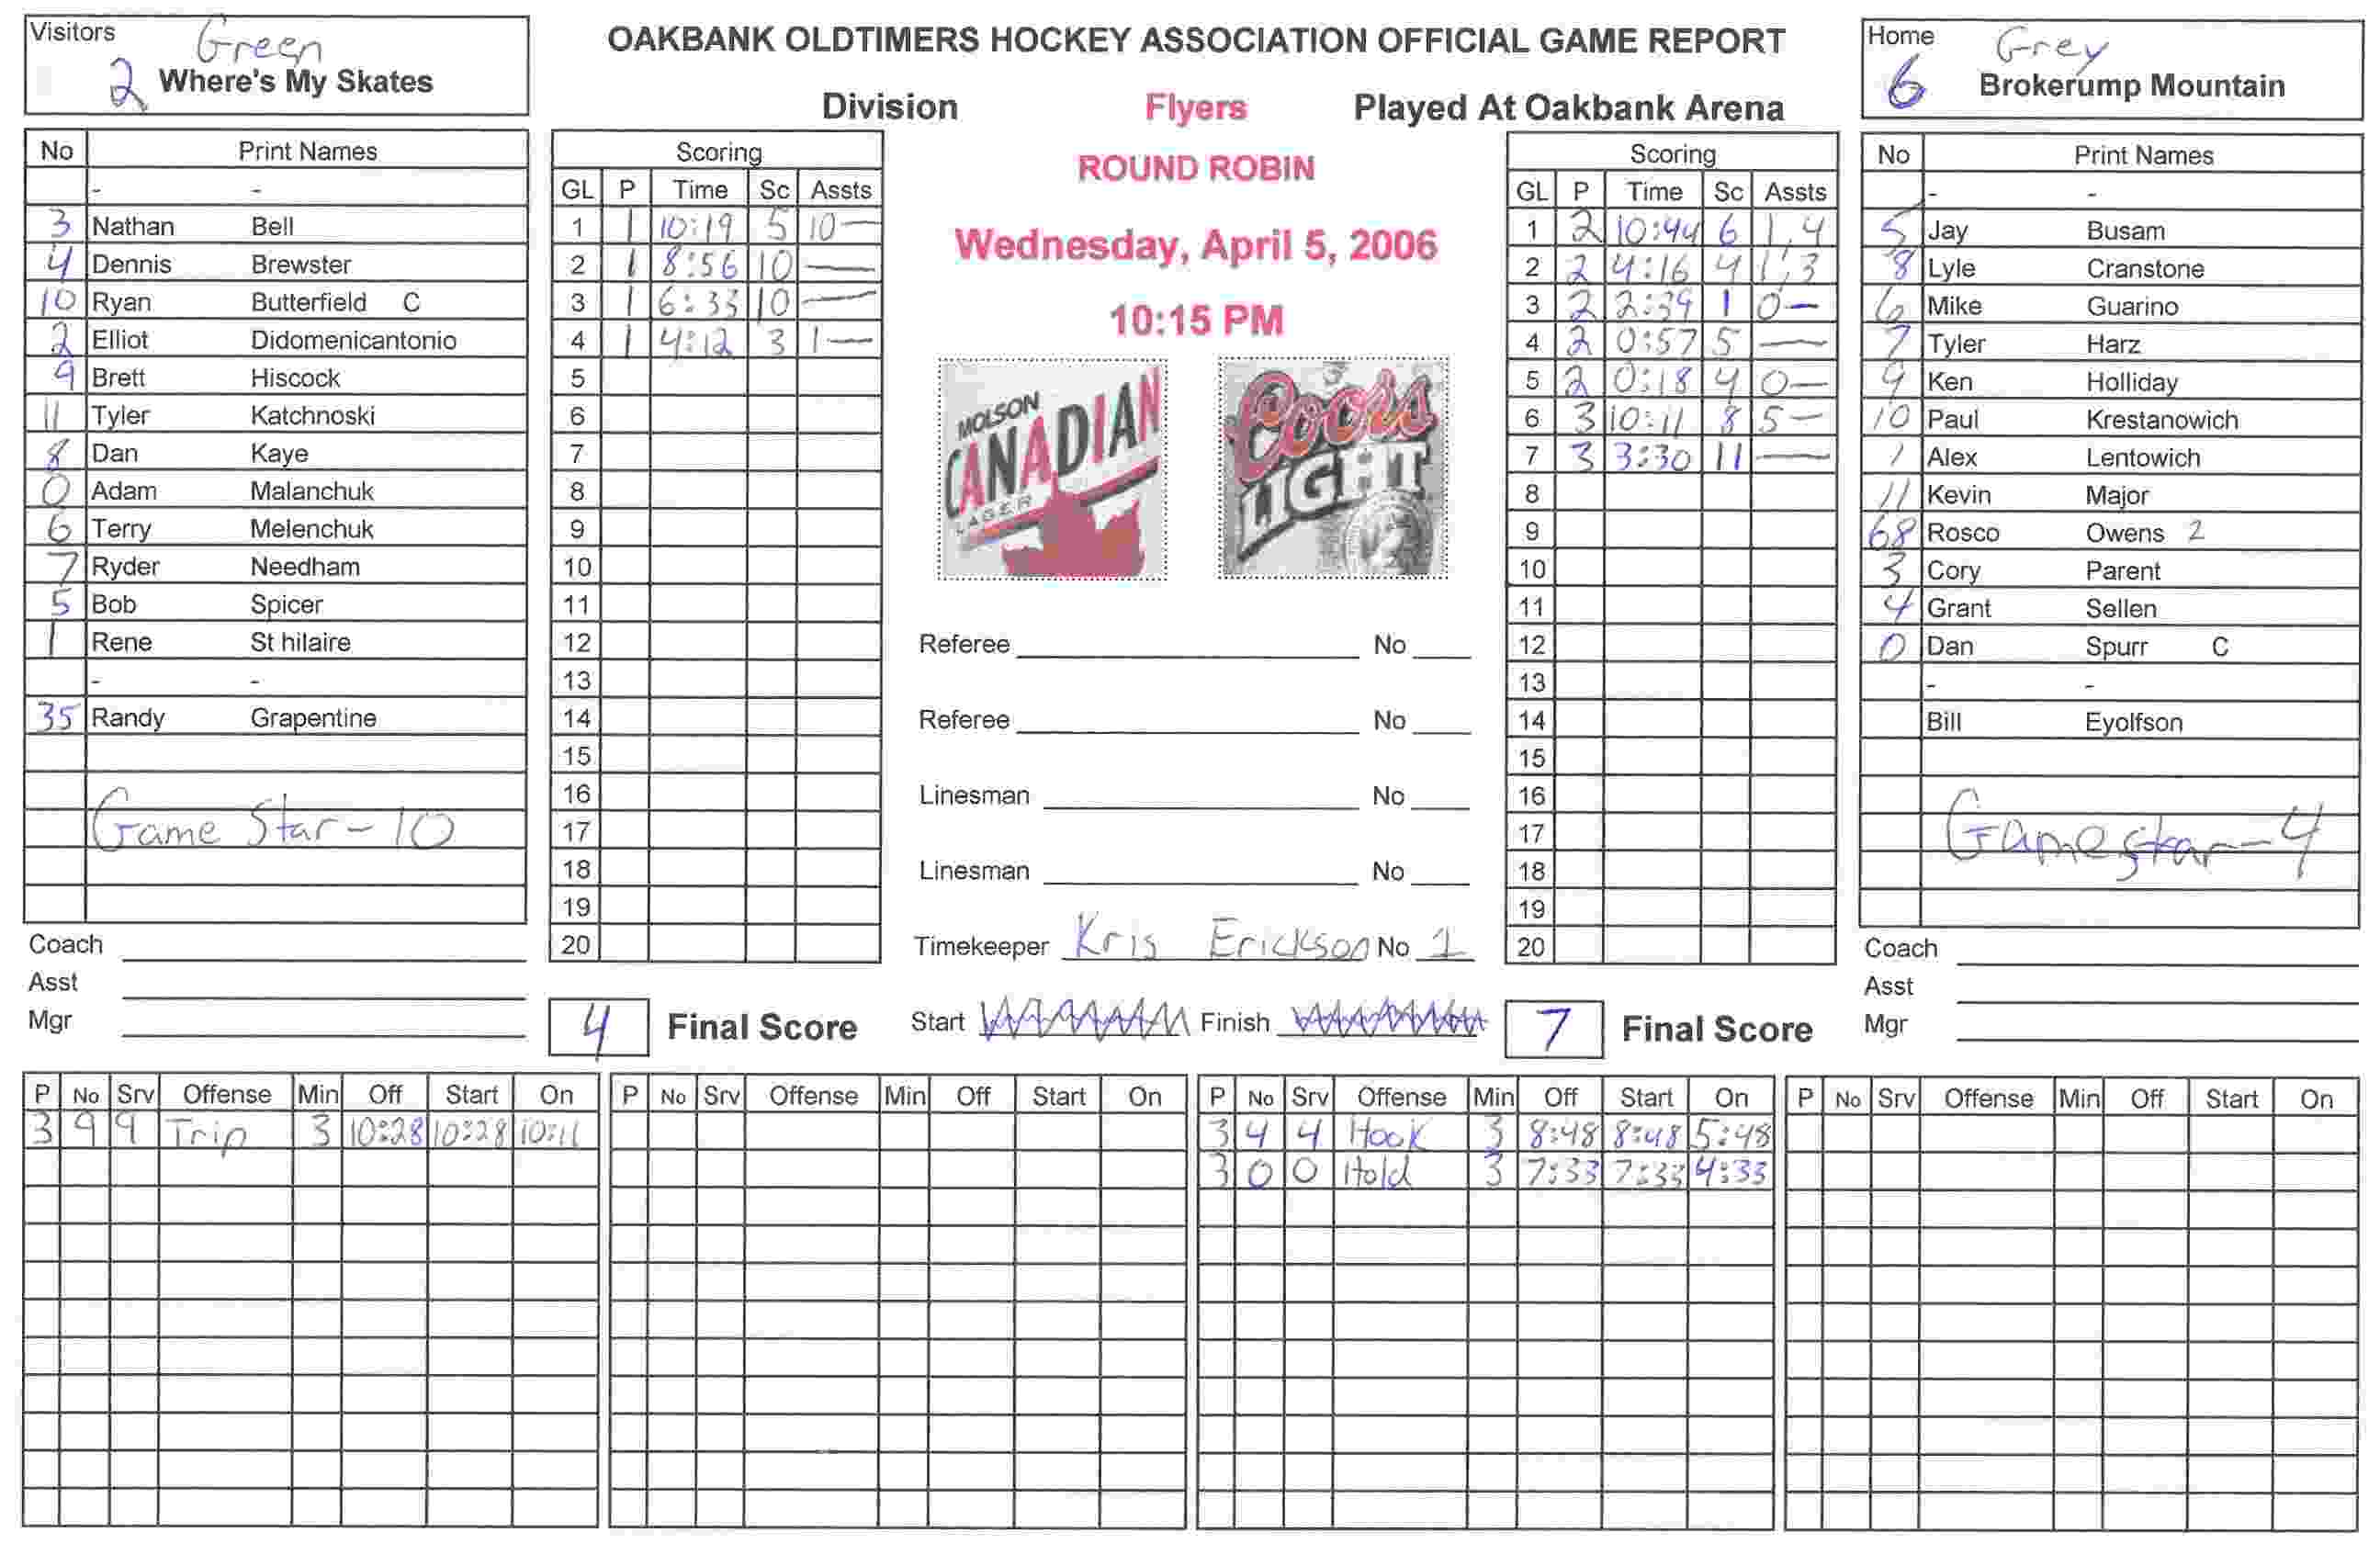 Visitors Green
2 Where's My Skates
OAKBANK OLDTIMERS HOCKEY ASSOCIATION OFFICIAL GAME REPORT
Division Flyers Played At Oakbank Arena
ROUND ROBIN
Wednesday, April 5, 2006
10:15 PM
Home Grey
6 Brokerump Mountain
No Print Names
- -
3 Nathan Bell
4 Dennis Brewster
10 Ryan Butterfield C
2 Elliot Didomenicantonio
9 Brett Hiscock
11 Tyler Katchnoski
8 Dan Kaye
0 Adam Malanchuk
6 Terry Melenchuk
7 Ryder Needham
5 Bob Spicer
1 Rene St hilaire
- -
35 Randy Grapentine
Game Star - 10
Coach
Asst
Mgr
Scoring
GL P Time Sc Assts
1 1 10:19 5 10 —
2 1 8:56 10 —
3 1 6:33 10 —
4 1 4:12 3 1 —
5
6
7
8
9
10
11
12
13
14
15
16
17
18
19
20
4 Final Score
MOLSON
CANADIAN
LAGER
Coors
LIGHT
Referee No
Referee No
Linesman No
Linesman No
Timekeeper Kris Erickson No 1
Start Finish
Scoring
GL P Time Sc Assts
1 2 10:44 6 1,4
2 2 4:16 4 1,3
3 2 2:39 1 0 —
4 2 0:57 5 —
5 2 0:18 4 0 —
6 3 10:11 8 5 —
7 3 3:30 11 —
8
9
10
11
12
13
14
15
16
17
18
19
20
7 Final Score
No Print Names
- -
5 Jay Busam
8 Lyle Cranstone
6 Mike Guarino
7 Tyler Harz
9 Ken Holliday
10 Paul Krestanowich
1 Alex Lentowich
11 Kevin Major
68 Rosco Owens 2
3 Cory Parent
4 Grant Sellen
0 Dan Spurr C
- -
Bill Eyolfson
Gamestar - 4
Coach
Asst
Mgr
P No Srv Offense Min Off Start On
3 9 9 Trip 3 10:28 10:28 10:11
P No Srv Offense Min Off Start On
P No Srv Offense Min Off Start On
3 4 4 Hook 3 8:48 8:48 5:48
3 0 0 Hold 3 7:33 7:33 4:33
P No Srv Offense Min Off Start On